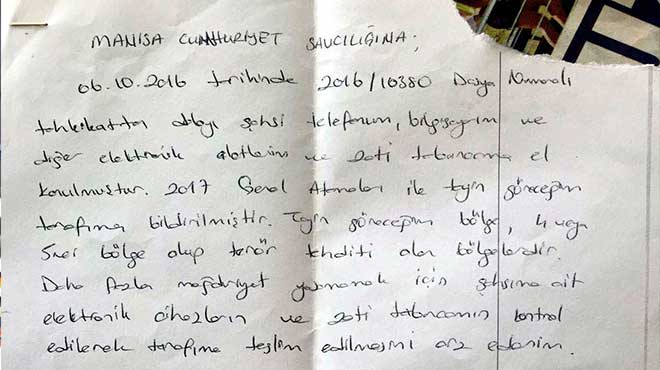 MANİSA CUMHURİYET SAVCILIĞINA;
06.10.2016 tarihinde 2016/10380 Dosya Numaralı
tahkikattan dolayı şahsi telefonum, bilgisayarım ve
diğer elektronik aletlerim ve zati tabancama el
konulmuştur. 2017 Genel Atmaları ile tayin göreceğim
tarafıma bildirilmiştir. Tayin göreceğim bölge, 4 veya
5nci bölge olup terör tehditi olan bölgelerdir.
Daha fazla mağdriyet yaşamamak için şahsıma ait
elektronik cihazların ve zati tabancamın kontrol
edilerek tarafıma teslim edilmesini arz ederim.